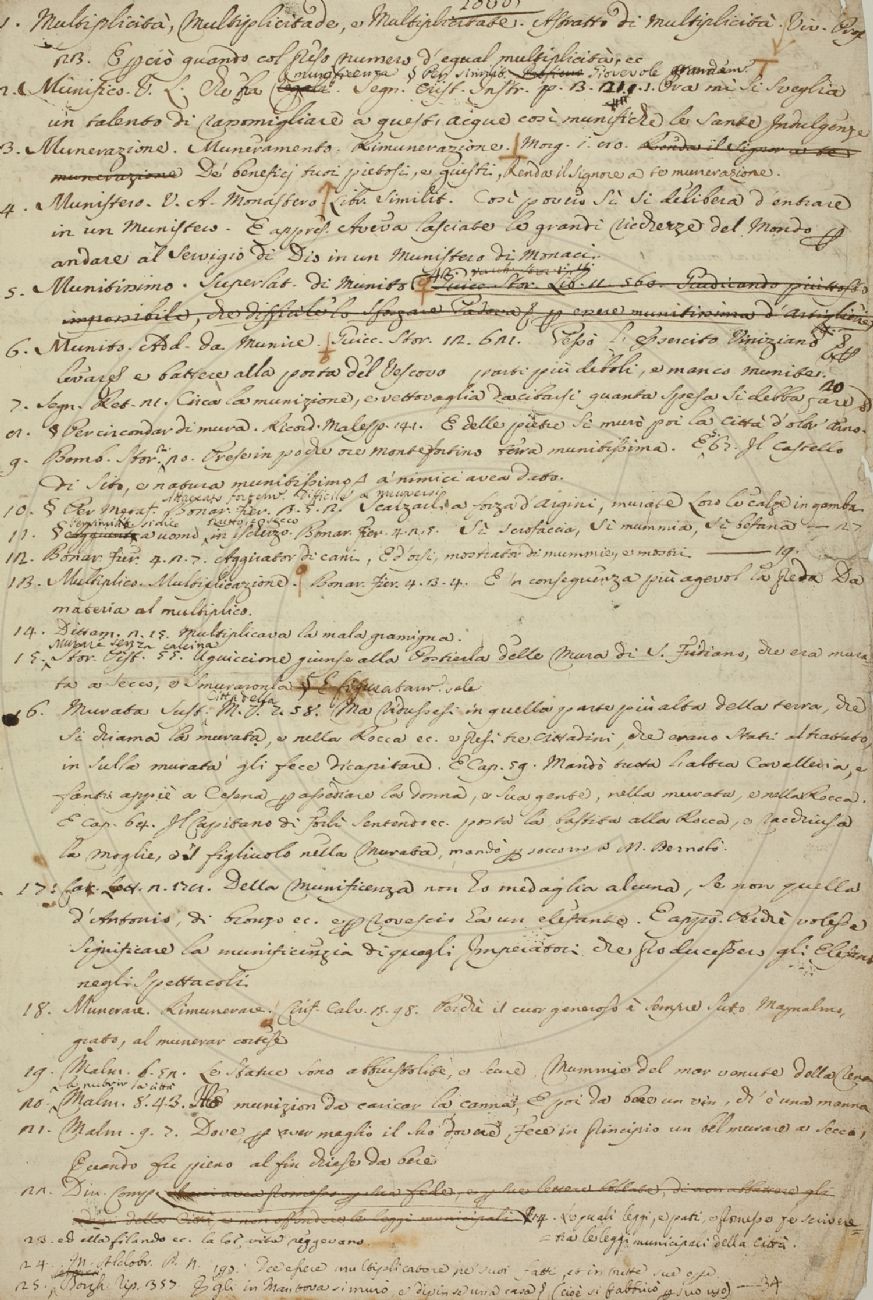 1. Multiplicità, Multiplicitade, e Multiplicitate. Astratto di multiplicità. Viv. Prop.
NB. E perciò quando col preso numero d'egual multiplicità, ec
munificenza § Per similit. Giovevole
2. Munifico. V. L. Segn. Crist. Instr. p. 3. 1. Ora mi si sveglia
un talento di rapomigliare a quest' acque così munifiche le Sante Indulgenze
3. Munerazione. Muneramento. Rimunerazione. Morg. 1. Renda il Signore a te
munerazione De' benefici tuoi pietosi, e giusti, Renda il Signore a te munerazione.
4. Munistero. V. A. Monastero Libr. Similit. Così povero sì si delibera d'entrare
in un Munistero. E appres. Aveva lasciate le grandi ricchezze del Mondo p
andare al Servigio di Dio in un Munistero di Monaci.
5. Munitissimo. Superlat. di Munito Guicc. Stor. Lib. 11. 560. Giudicando piuttosto
impossibile, che difficile lo sforzare Padova p essere munitissima d'Artiglierie
6. Munito. Add. da Munire. Guicc. Stor. 12. 621. l'esercito Viniziano
levarsi e battere alla porta del Vescovo parti più deboli, e manco munite.
7. Segn. Ret. 21 Circa la munizione, e vettovaglia da cibarsi quanta spesa si debba fare
8. § Per circondar di mura. Ricord. Malesp. 141. E delle pietre si murò poi la Città d'oltr' Arno.
9. Bemb. Stor. 20. Prese in poche ore Montefortino terra munitissima. E 63. Il Castello
di Sito, e natura munitissimo a' nimici avea dato.
10. § Per Metaf. Bonar. Fier. 3. 5. 2. Scalzarli a forza d'argini, murate loro le calze in gamba.
11. § a uomo in ischerzo. Bonar. Fier. 4. 2. 5. Si scrofaccia, si mummia, si befana — 27
12. Bonar. Fier. 4. 2. 7. Aggirator di cani, Ed orsi, mostrator di mummie, e mostri — 19.
13. Multiplico. Multiplicazione. Bonar. Fier. 4. 3. 4. E 'n conseguenza più agevol la Da
materia al multiplico.
14. Dittam. 2. 15. Multiplicava la mala gramigna.
Murare senza calcina
15. Stor. Pist. 55. Uguiccione giunse alla Porticela delle Mura di S. Fridiano, che era mura-
ta a Secco, e Smuraronla § E figuratam. vale
Cittadella
16. Murata Sust. M. V. 7. 58. Ma ridussesi in quella parte più alta della terra, che
si chiama la murata, e nella Rocca ec. e presi tre Cittadini, che erano stati al trattato,
in sulla murata gli fece dicapitare. E Cap. 59. Mandò tutta l'altra Cavalleria, e
fanti appiè a Cesena p assediare la donna, e sua gente, nella murata, e nella Rocca.
E cap. 64. Il Capitano di Forlì sentendo ec. posta la bastita alla Rocca, e racchiusa
la moglie, e 'l figliuolo nella Murata, mandò p soccorso a M. Bernabò.
17. Car. Lett. 2. 171. Della Munificenza non ho medaglia alcuna, se non quella
d'Antonio, di bronzo ec. e p rovescio ha un elefante. E appo. Perchè volesse
significare la munificenzia di quegli Imperatori che producessero gli Elefanti
negli Spettacoli.
18. Munerare. Rimunerare. Calv. 3. 95. Perchè il cuor generoso è sempre suto Magnalmo,
grato, al munerar cortese
19. Malm. 6. 52. Le Statue sono abbustolite, e scure Mummie del mar venute della Rena
20. Malm. 8. 43. Ha munizion da caricar la canna, E poi da bere un vin, ch' è una manna
21. Malm. 9. 7. Dove, p aver meglio il suo dovere, Fece in principio un bel murare a secco;
E quando fu pieno al fin chiese da bere
22. Din. Comp. Avea promesso p sua fede, e p sue lettere bollate, di non abbattere gli
della Città, e non offendere le leggi municipali 14. Le quali leggi, e patti, e promesse fe scrivere
= tra le leggi municipali della Città.
23. ed ella filando ec. la lor vita reggevano
24. Fr. Aldobr. P. N. 197. Dee essere multiplicatore ne' suoi fatti, et in tutte sue opere
25. Borgh. Rip. 357. E gli in Mantova si murò, e dipinse una casa § (cioè si fabbricò p suo uso) — 34